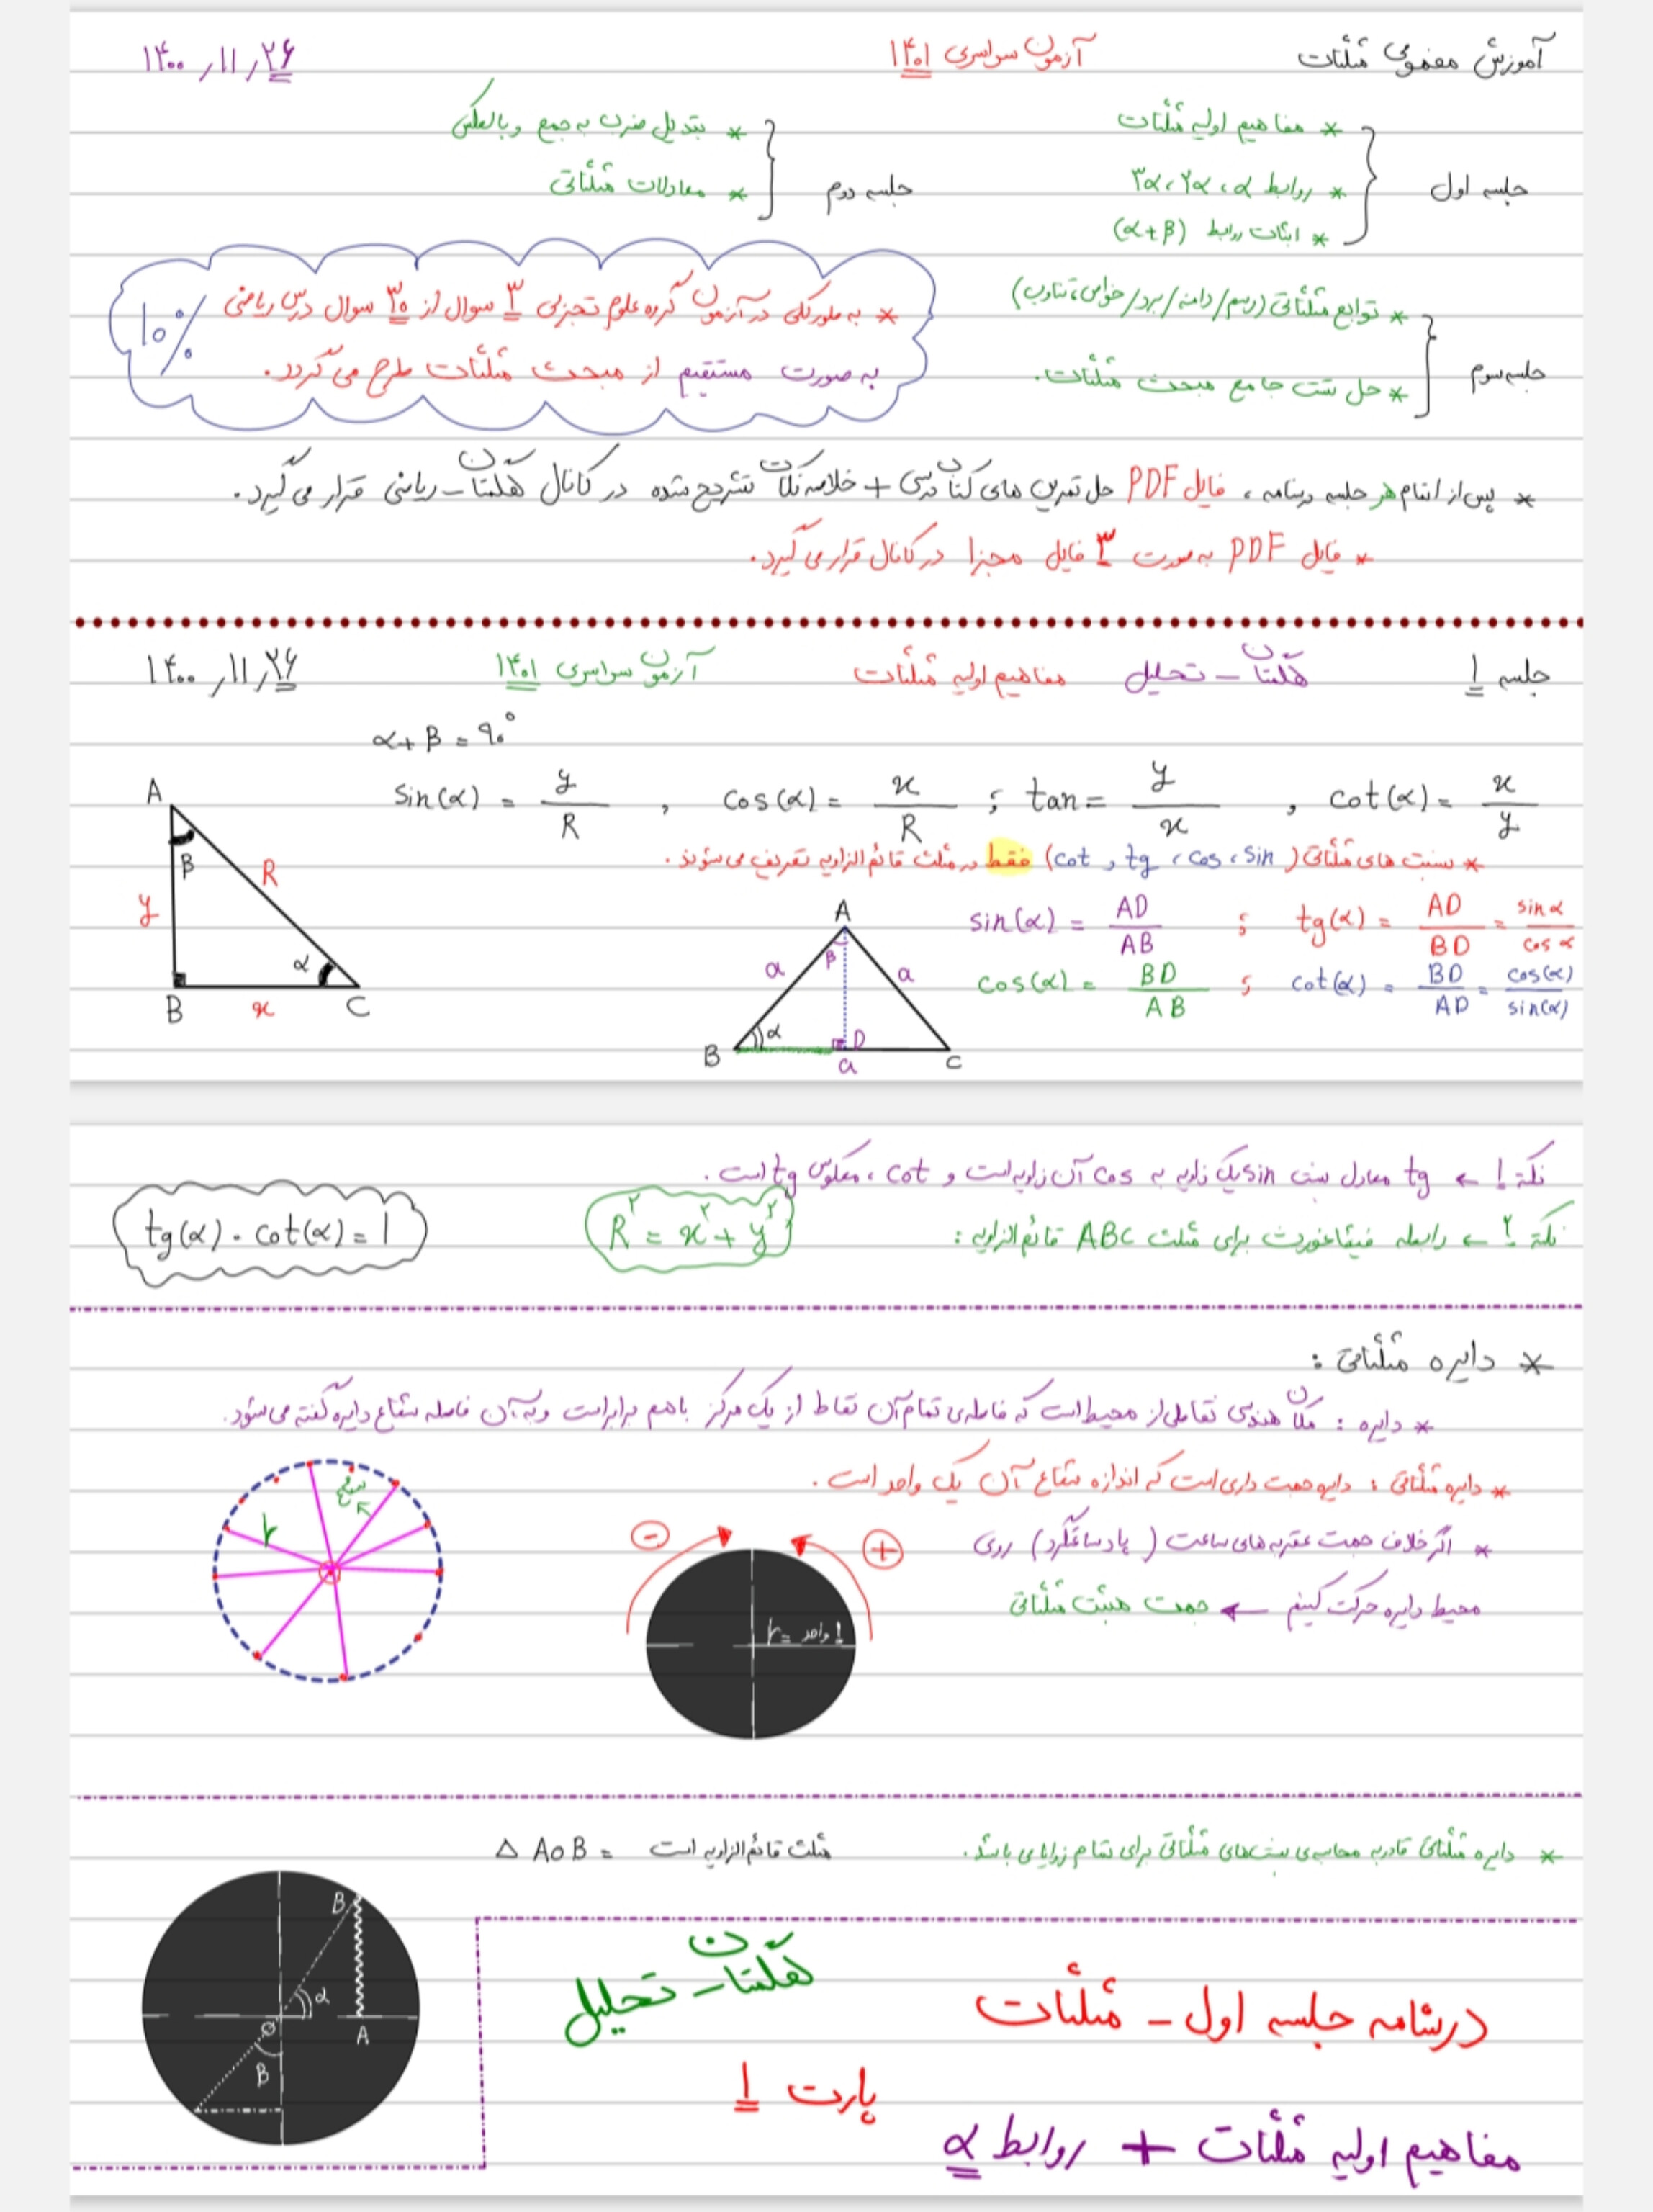 آموزش مفهومی مثلثات
آزمون سراسری ۱۴۰۱
۱۴۰۰/۱۱/۲۶
جلسه اول
* مفاهیم اولیه مثلثات
* روابط α ، ۲α ، ۳α
* اثبات روابط (α+β)
جلسه دوم
* تبدیل ضرب به جمع و بالعکس
* معادلات مثلثاتی
جلسه سوم
* توابع مثلثاتی (رسم/دامنه/برد/خواص، تناوب)
* حل تست جامع مبحث مثلثات.
* به طور کلی در آزمون گروه علوم تجربی ۳ سوال از ۳۰ سوال درس ریاضی
به صورت مستقیم از مبحث مثلثات طرح می گردد.
۱۰%
* پس از اتمام هر جلسه درسنامه، فایل PDF حل تمرین های کتاب درسی + خلاصه نکات تشریح شده در کانال گلستان - ریاضی قرار می گیرد.
* فایل PDF به صورت ۳ فایل مجزا در کانال قرار می گیرد.
جلسه ۱
تحلیل
مفاهیم اولیه مثلثات
آزمون سراسری ۱۴۰۱
۱۴۰۰/۱۱/۲۶
α+β = ۹۰°
sin(α) = y/R , cos(α) = x/R ; tan = y/x , cot(α) = x/y
* نسبت های مثلثاتی (sin ، cos ، tg و cot) فقط در مثلث قائم الزاویه تعریف می شوند.
A
β
R
y
α
B
x
C
A
β
a
a
α
D
B
a
C
sin(α) = AD/AB ; tg(α) = AD/BD = sin α/cos α
cos(α) = BD/AB ; cot(α) = BD/AD = cos(α)/sin(α)
نکته ۱ ← tg معادل نسبت sin یک زاویه به cos آن زاویه است و cot، معکوس tg است.
نکته ۲ ← رابطه فیثاغورث برای مثلث ABC قائم الزاویه :
R² = x² + y²
tg(α) . cot(α) = 1
* دایره مثلثاتی :
* دایره : مکان هندسی نقاطی از محیط است که فاصله ی تمام آن نقاط از یک مرکز با هم برابر است و به آن فاصله شعاع دایره گفته می شود.
* دایره مثلثاتی : دایره جهت داری است که اندازه شعاع آن یک واحد است.
* اگر خلاف جهت عقربه های ساعت (پادساعتگرد) روی
محیط دایره حرکت کنیم ← جهت مثبت مثلثاتی
شعاع
r
−
+
r = ۱ واحد
* دایره مثلثاتی قادر به محاسبه ی نسبت های مثلثاتی برای تمام زوایا می باشد.
△ AoB = مثلث قائم الزاویه است
B
α
O
A
β
درسنامه جلسه اول - مثلثات
تحلیل
پارت ۱
مفاهیم اولیه مثلثات + روابط α